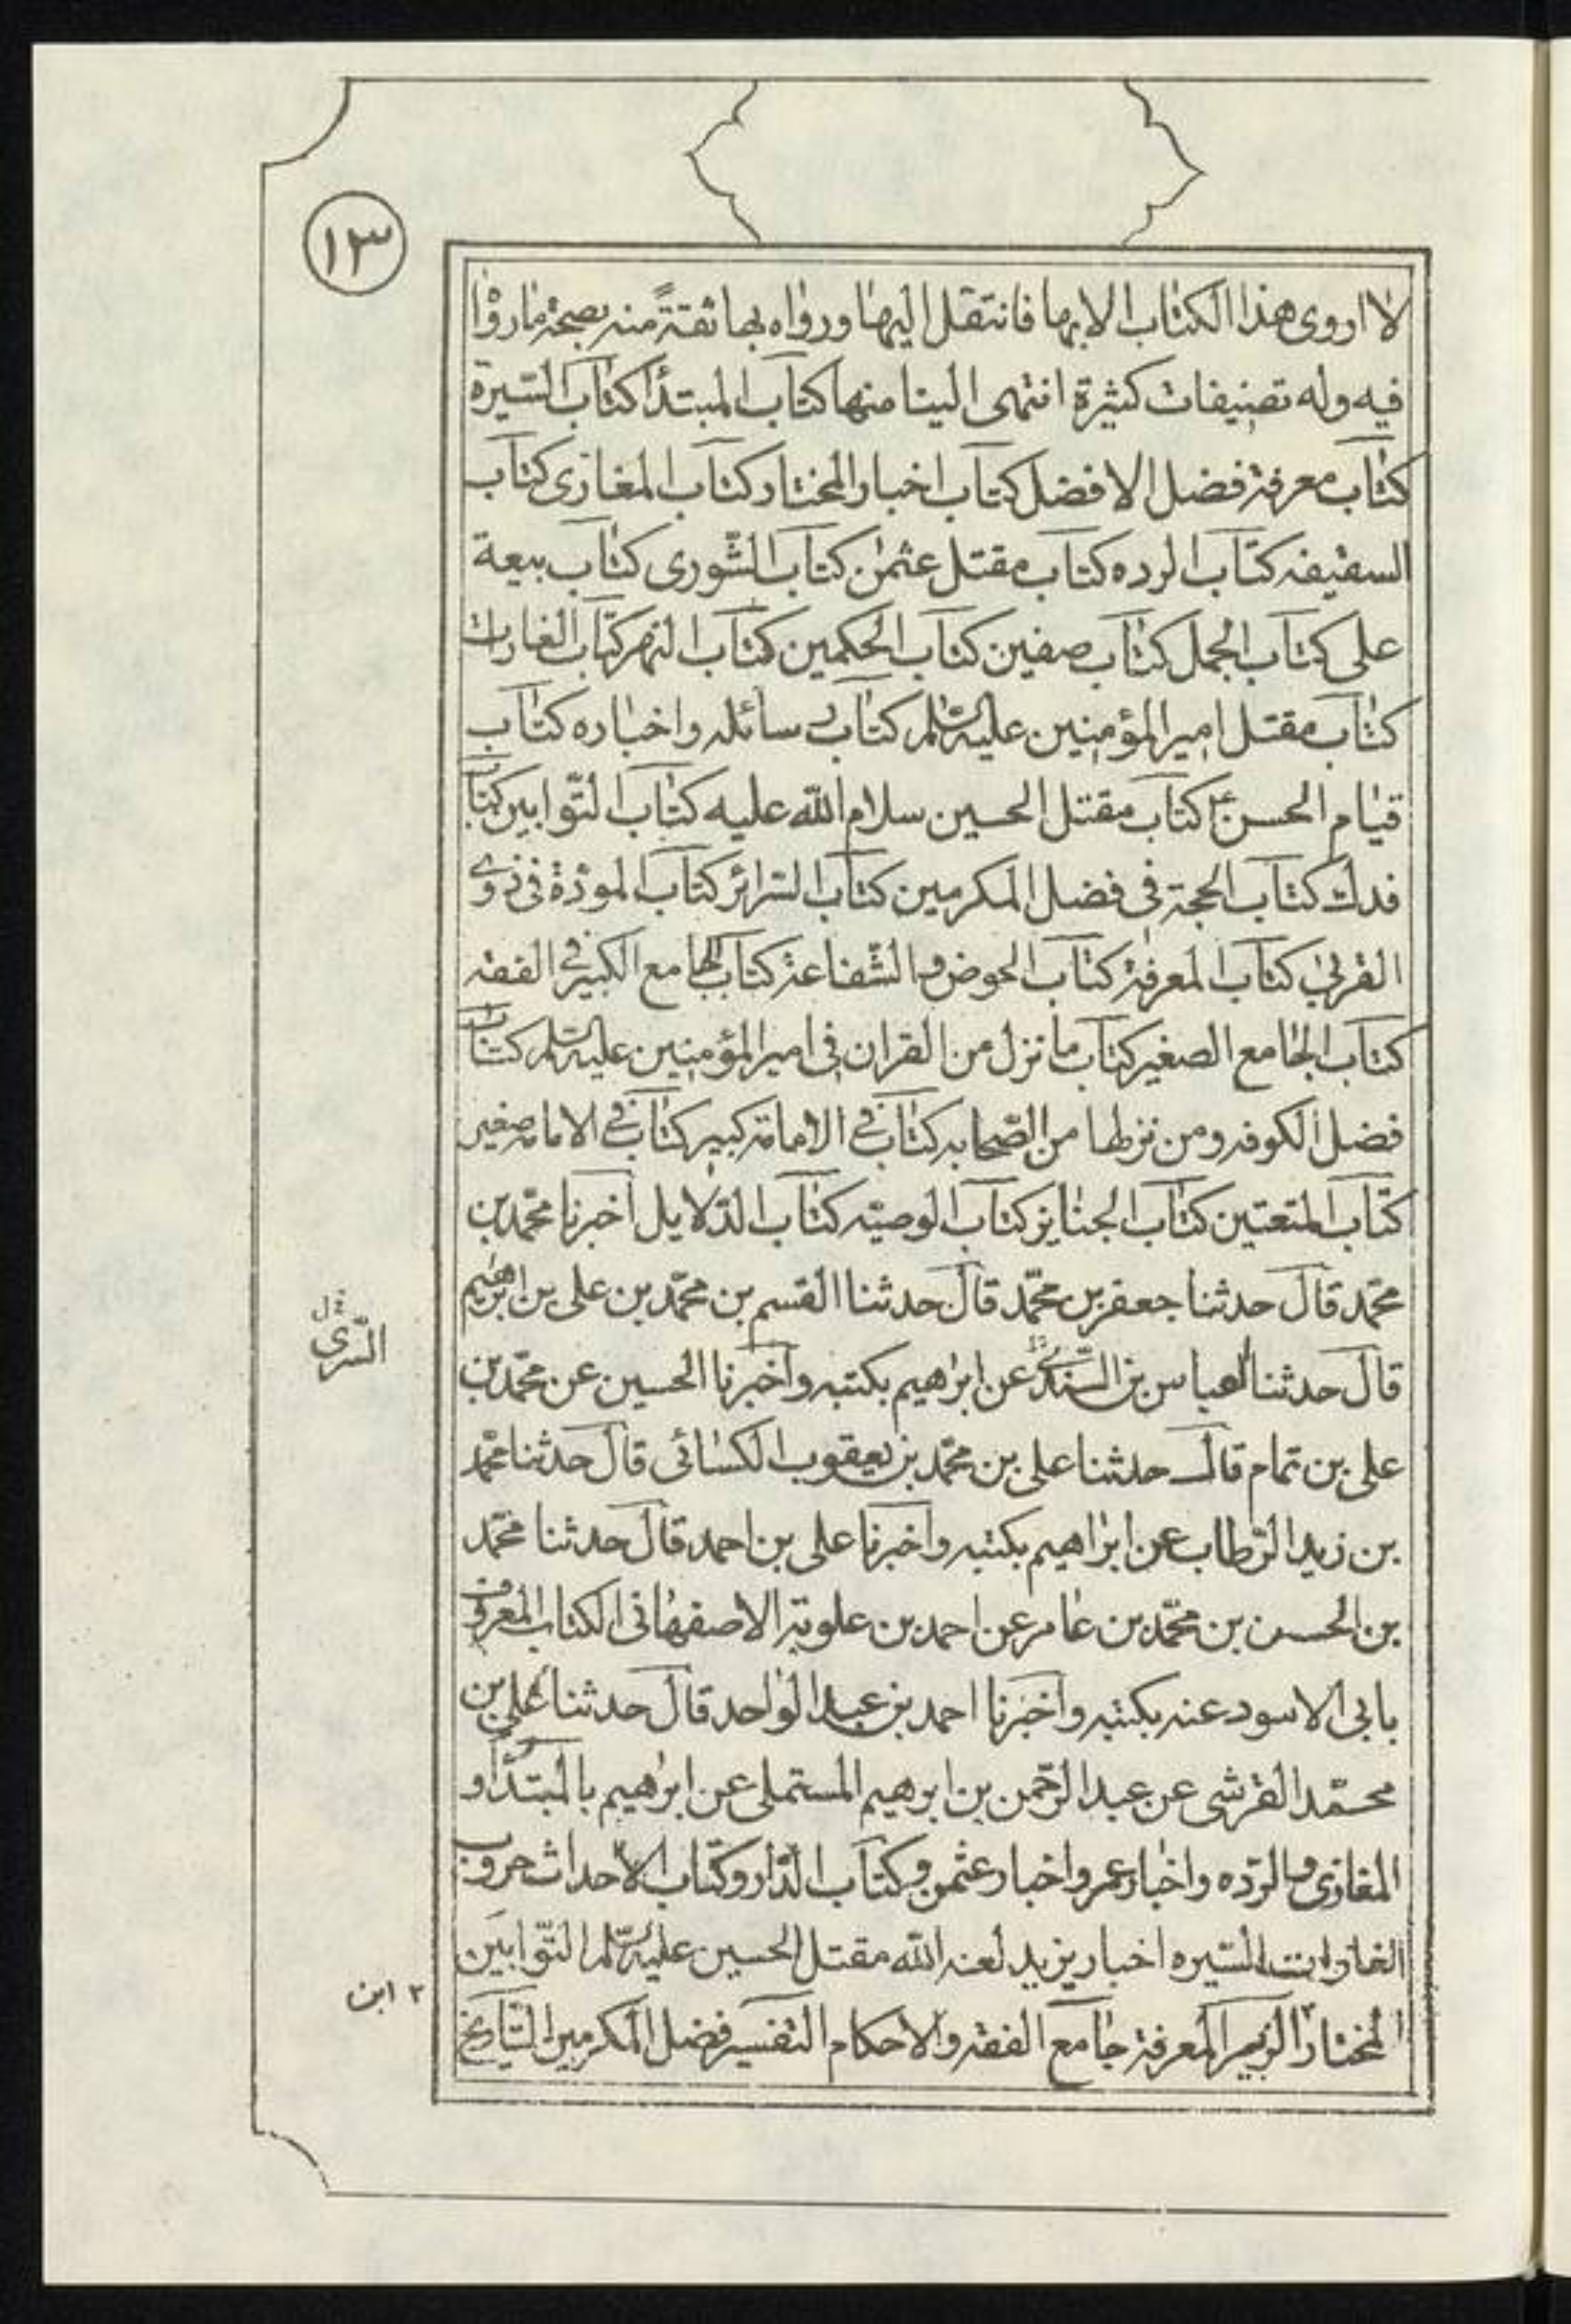 ١٣
لا اروى هذا الكتاب الا بها فانتقل اليها ورواه بها ثقة منه بصحة ما رواه
فيه وله تصنيفات كثيرة انتهى الينا منها كتاب المبتدأ كتاب السيرة
كتاب معرفة فضل الافضل كتاب اخبار المختار كتاب المغازى كتاب
السقيفه كتاب الرده كتاب مقتل عثمن كتاب الشورى كتاب بيعة
على كتاب الجمل كتاب صفين كتاب الحكمين كتاب النهر كتاب الغارات
كتاب مقتل امير المؤمنين عليه السلم كتاب رسائله واخباره كتاب
قيام الحسن ع كتاب مقتل الحسين سلام الله عليه كتاب التوابين كتاب
فدك كتاب الحجة فى فضل المكرمين كتاب السرائر كتاب المودة فى ذوى
القربى كتاب المعرفة كتاب الحوض والشفاعة كتاب الجامع الكبير فى الفقه
كتاب الجامع الصغير كتاب ما نزل من القران فى امير المؤمنين عليه السلم كتاب
فضل الكوفه ومن نزلها من الصحابه كتاب فى الامامة كبير كتاب فى الامامه صغير
كتاب المتعتين كتاب الجنايز كتاب الوصيه كتاب الدلايل اخبرنا محمد بن
محمد قال حدثنا جعفر بن محمد قال حدثنا القسم بن محمد بن على بن ابرهيم
قال حدثنا العباس بن السندى عن ابراهيم بكتبه واخبرنا الحسين عن محمد بن
السرى
على بن تمام قال حدثنا على بن محمد بن يعقوب الكسائى قال حدثنا محمد
بن زيد الرطاب عن ابراهيم بكتبه واخبرنا على بن احمد قال حدثنا محمد
بن الحسن بن محمد بن عامر عن احمد بن علوية الاصفهانى الكتاب المعروف
بابى الاسود عنه بكتبه واخبرنا احمد بن عبد الواحد قال حدثنا على بن
محمد القرشى عن عبد الرحمن بن ابرهيم المستملى عن ابرهيم بالمبتدأ و
المغازى والرده واخبار عمر واخبار عثمن وكتاب الدار وكتاب الاحداث حروب
الغارات السيره اخبار يزيد لعنه الله مقتل الحسين عليه السلم التوابين
٢ ابن
المختار الزبير المعرفة جامع الفقه والاحكام التفسير فضل المكرمين التاريخ